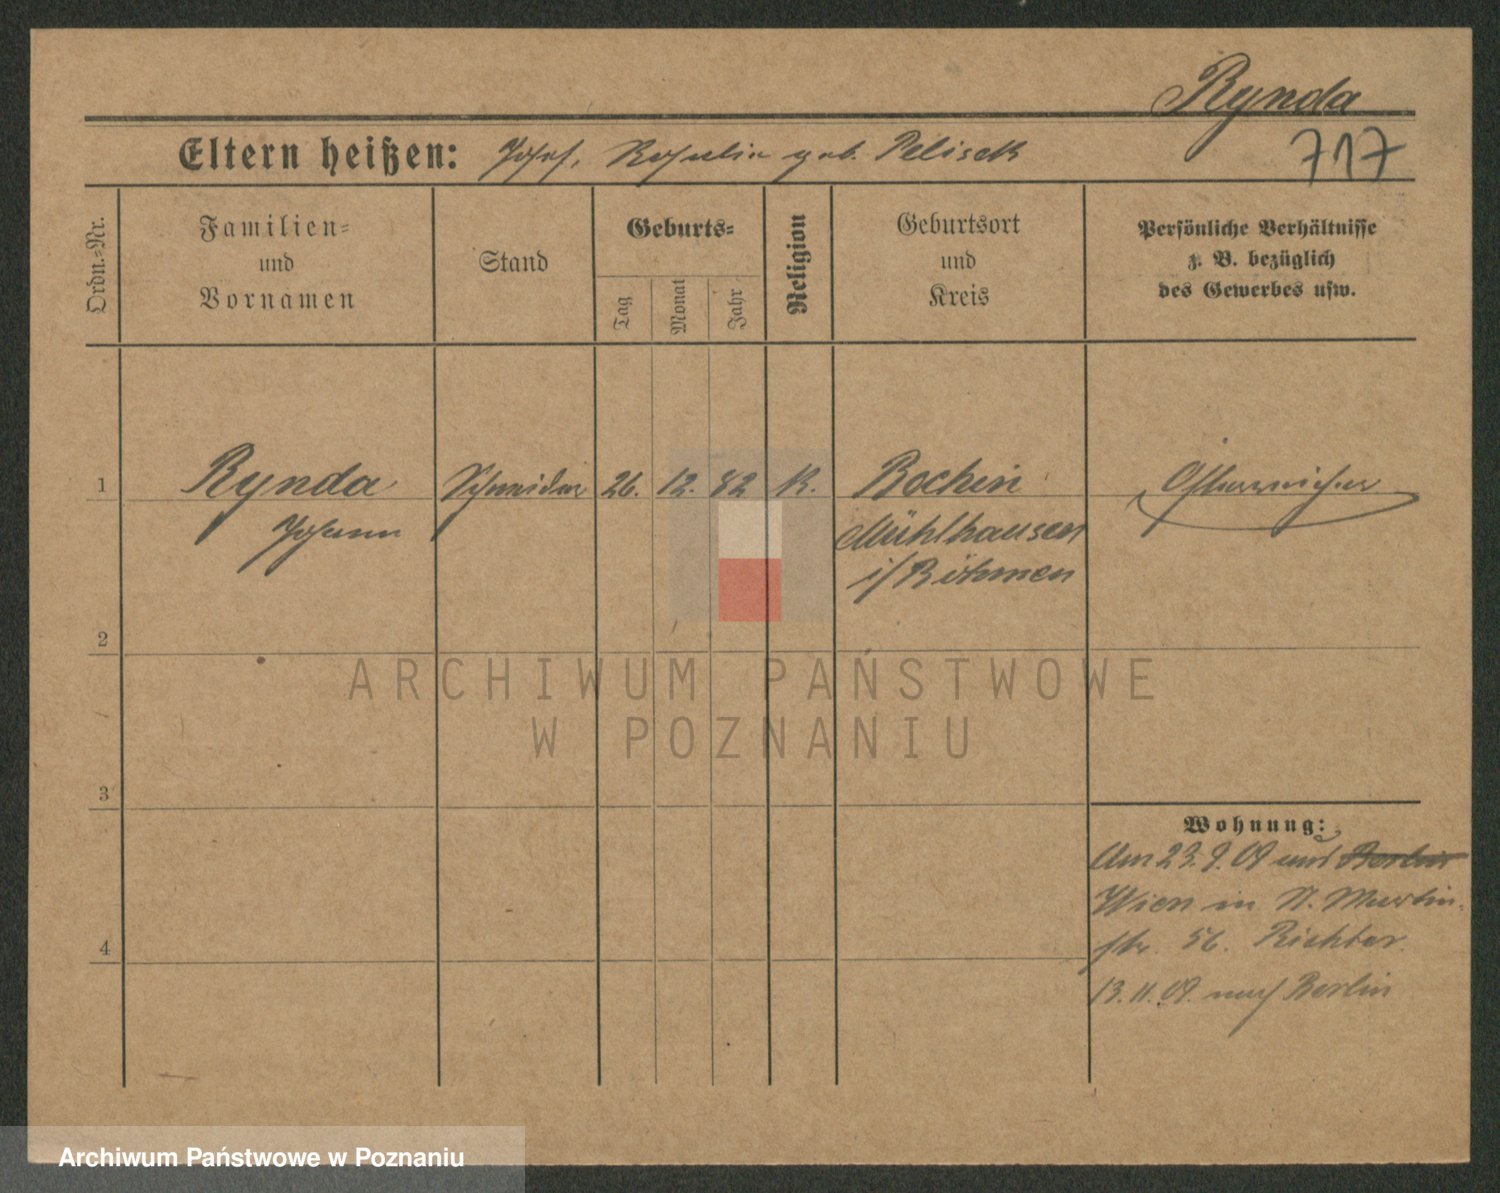 Rynda
717
Eltern heißen: Josef, Rosalia geb. Pelisek
Ordn.-Nr.
Familien-
und
Vornamen
Stand
Geburts-
Tag
Monat
Jahr
Religion
Geburtsort
und
Kreis
Persönliche Verhältnisse
z. B. bezüglich
des Gewerbes usw.
1
Rynda
Johann
Schneider
26. 12. 82
K.
Bochin
Mühlhausen
i/Böhmen
Österreicher
2
3
4
Wohnung:
Am 23.9.09 aus Berlin
Wien in St. Martin-
str. 56. Richter.
13.11.09. nach Berlin
ARCHIWUM PAŃSTWOWE
W POZNANIU
Archiwum Państwowe w Poznaniu